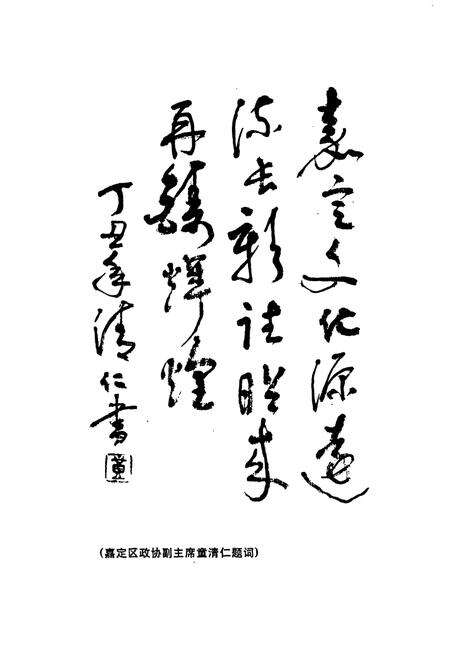 嘉定文化源遠
流长彰往昭来
再鑄煇煌
丁丑年清仁書
(嘉定区政协副主席童清仁题词)